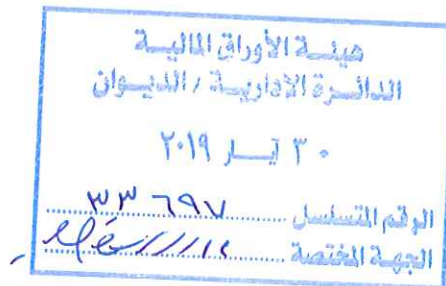 هيئة الأوراق المالية
الدائرة الادارية / الديوان
٣٠ آيار ٢٠١٩
الرقم المتسلسل ٣٣٦٩٧
الجهة المختصة